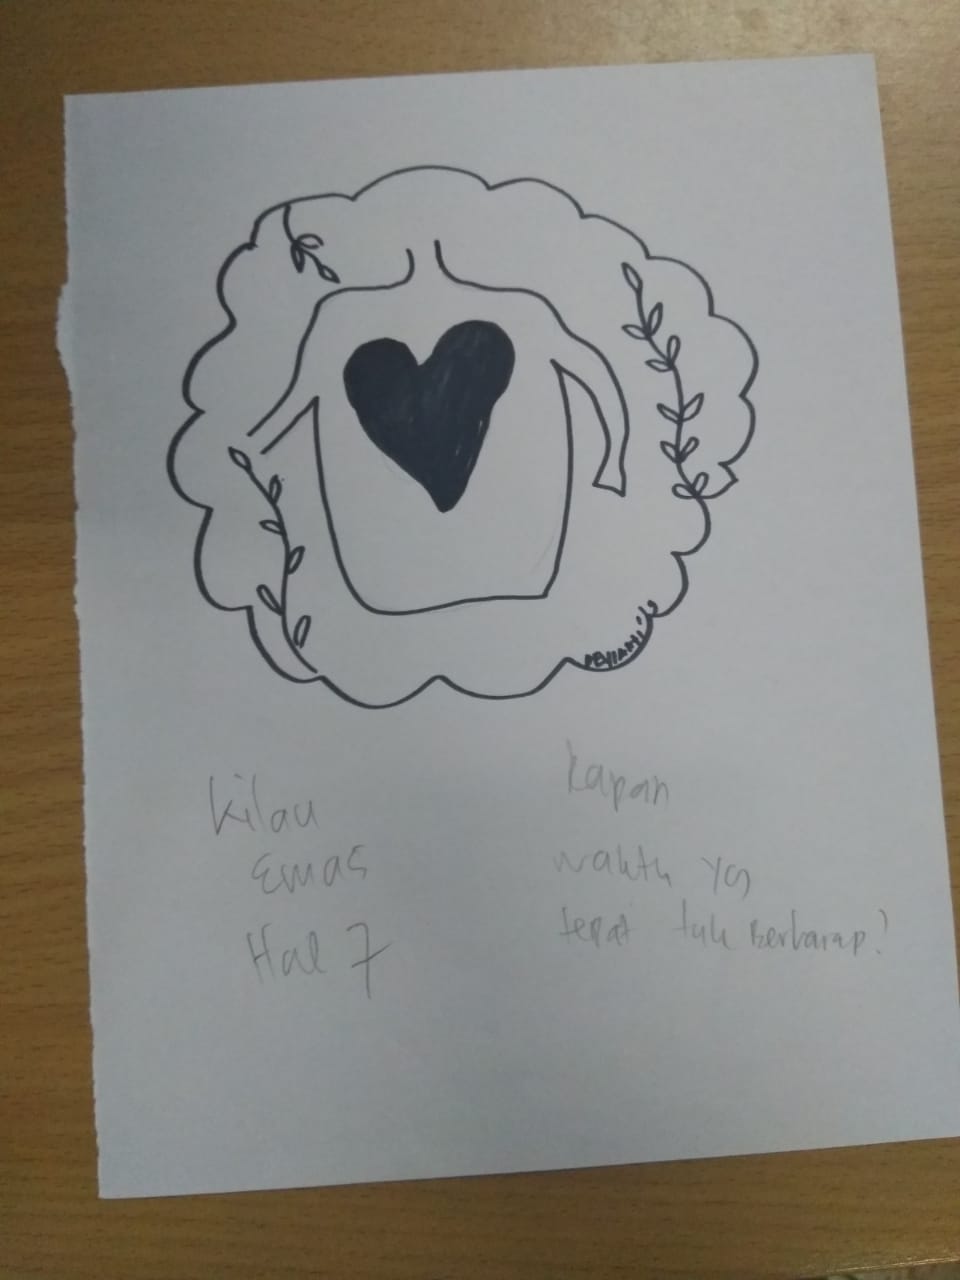 Kilau
Emas
Hal 7
Kapan
waktu yg
tepat tuk Berharap?